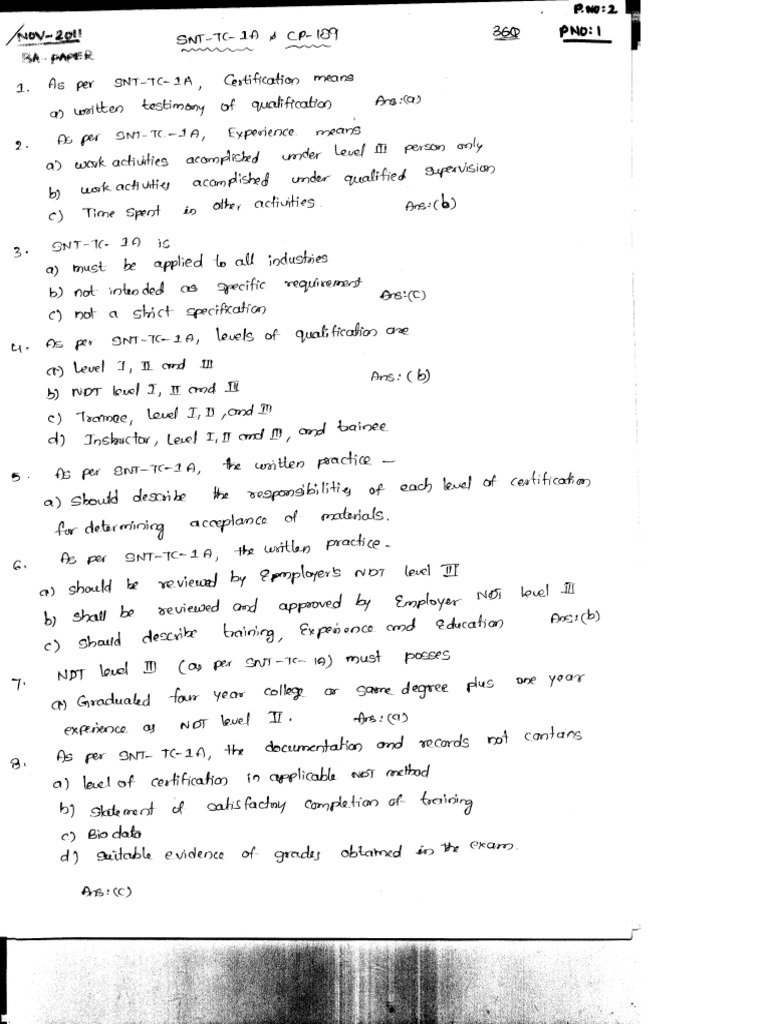 P.NO:2
NOV-2011 SNT-TC-1A & CP-189 36Q P NO:1
BA-PAPER
1. As per SNT-TC-1A, Certification means
a) written testimony of qualification Ans:(a)
2. As per SNT-TC-1A, Experience means
a) work activities acomplished under Level III person only
b) work activities acomplished under qualified supervision
c) Time Spent in other activities. Ans:(b)
3. SNT-TC-1A is
a) must be applied to all industries
b) not intended as specific requirement
c) not a strict specification Ans:(c)
4. As per SNT-TC-1A, levels of qualification are
a) Level I, II and III
b) NDT level I, II and III Ans:(b)
c) Trainee, Level I, II, and III
d) Instructor, Level I, II and III, and trainee
5. As per SNT-TC-1A, the written practice –
a) should describe the responsibilities of each level of certification
for determining acceptance of materials.
6. As per SNT-TC-1A, the written practice.
a) should be reviewed by Employer's NDT level III
b) shall be reviewed and approved by Employer NDT level III
c) should describe training, Experience and Education Ans:(b)
7. NDT level III (as per SNT-TC-1A) must posses
a) Graduated four year college or same degree plus one year
experience as NDT level II. Ans:(a)
8. As per SNT-TC-1A, the documentation and records not contans
a) level of certification in applicable NDT method
b) statement of satisfactry completion of training
c) Bio data
d) suitable evidence of grades obtained in the exam.
Ans:(c)